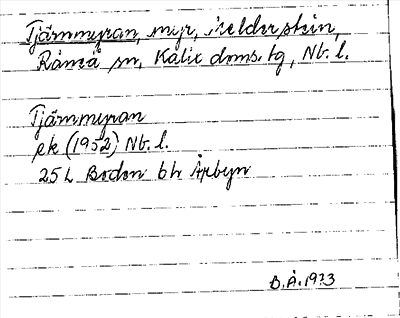 Tjärnmyran, myr, Melderstein,
Råneå sn, Kalix doms. tg, Nb. l.
Tjärnmyran
ek (1952) Nb. l.
25 L Boden bh Årbyn
D.Å. 1973